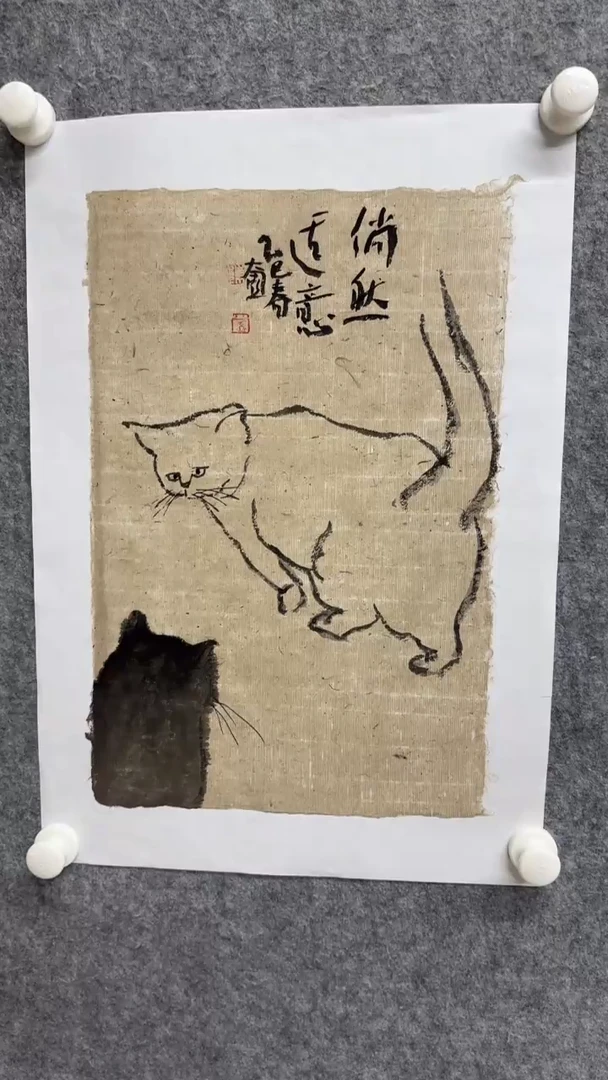 倘然
适意
乙巳春